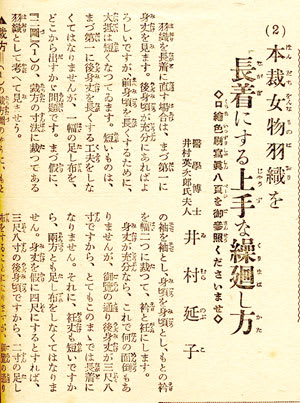 (2) 本裁女物羽織を
長着にする上手な繰廻し方
◇口繪色刷寫眞八頁を御參照くださいませ◇
醫學博士
井村英次郎氏夫人
井村延子
羽織を長着に直す場合は、まづ第一に
身丈を見ます。後身頃が充分にあればよ
ろしいですが、前身頃も長くするために、
大抵は短くなつてゐます。短いものは、
まづ第一に後身丈を長くする工夫をしな
くてはなりませんが、幅の足し布を、
どこから出すかゞ問題です。まづ假に、
『二圖』(1)の、裁方の寸法に裁つてある
羽織として考へて見ませう。
裁方
の袖を袖とし、身頃を身頃とし、もとの衿
を幅二つに裁つて、衿と衽にします。
身丈が充分なら、これで何の面倒もあ
りませんが、御覽の通り後身丈が三尺八
寸ですから、とてもこのまゝでは長着に
なりません。それに、衽丈も短いですか
ら、兩方とも足し布をしなくてはなりま
せん。身丈を假に四尺にするとすれば、
三尺八寸の後身頃ですから、二寸の足し